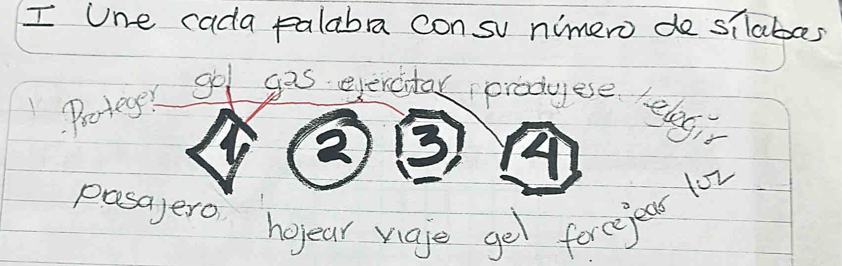 I Une cada palabra con su número de sílabas
Proteger gol gas ejercitar produjese elegir
1 2 3 4
pasajero hojear viaje gel forcejear luz